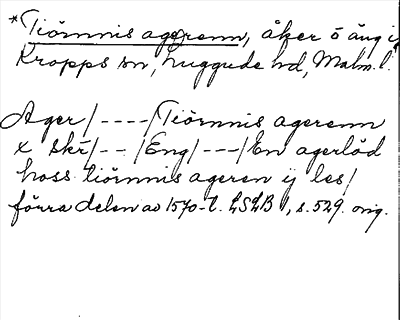 *Tiörnnis agerenn, åker ö äng i
Kropps sn, Luggude hd, Malm. l.
Ager/----/Tiörnnis agerenn
x skr/--/Eng/---/En agerlöd
hoss tiörnnis ageren ij les/
förra delen av 1570-t. LSLB 1, s. 529. orig.